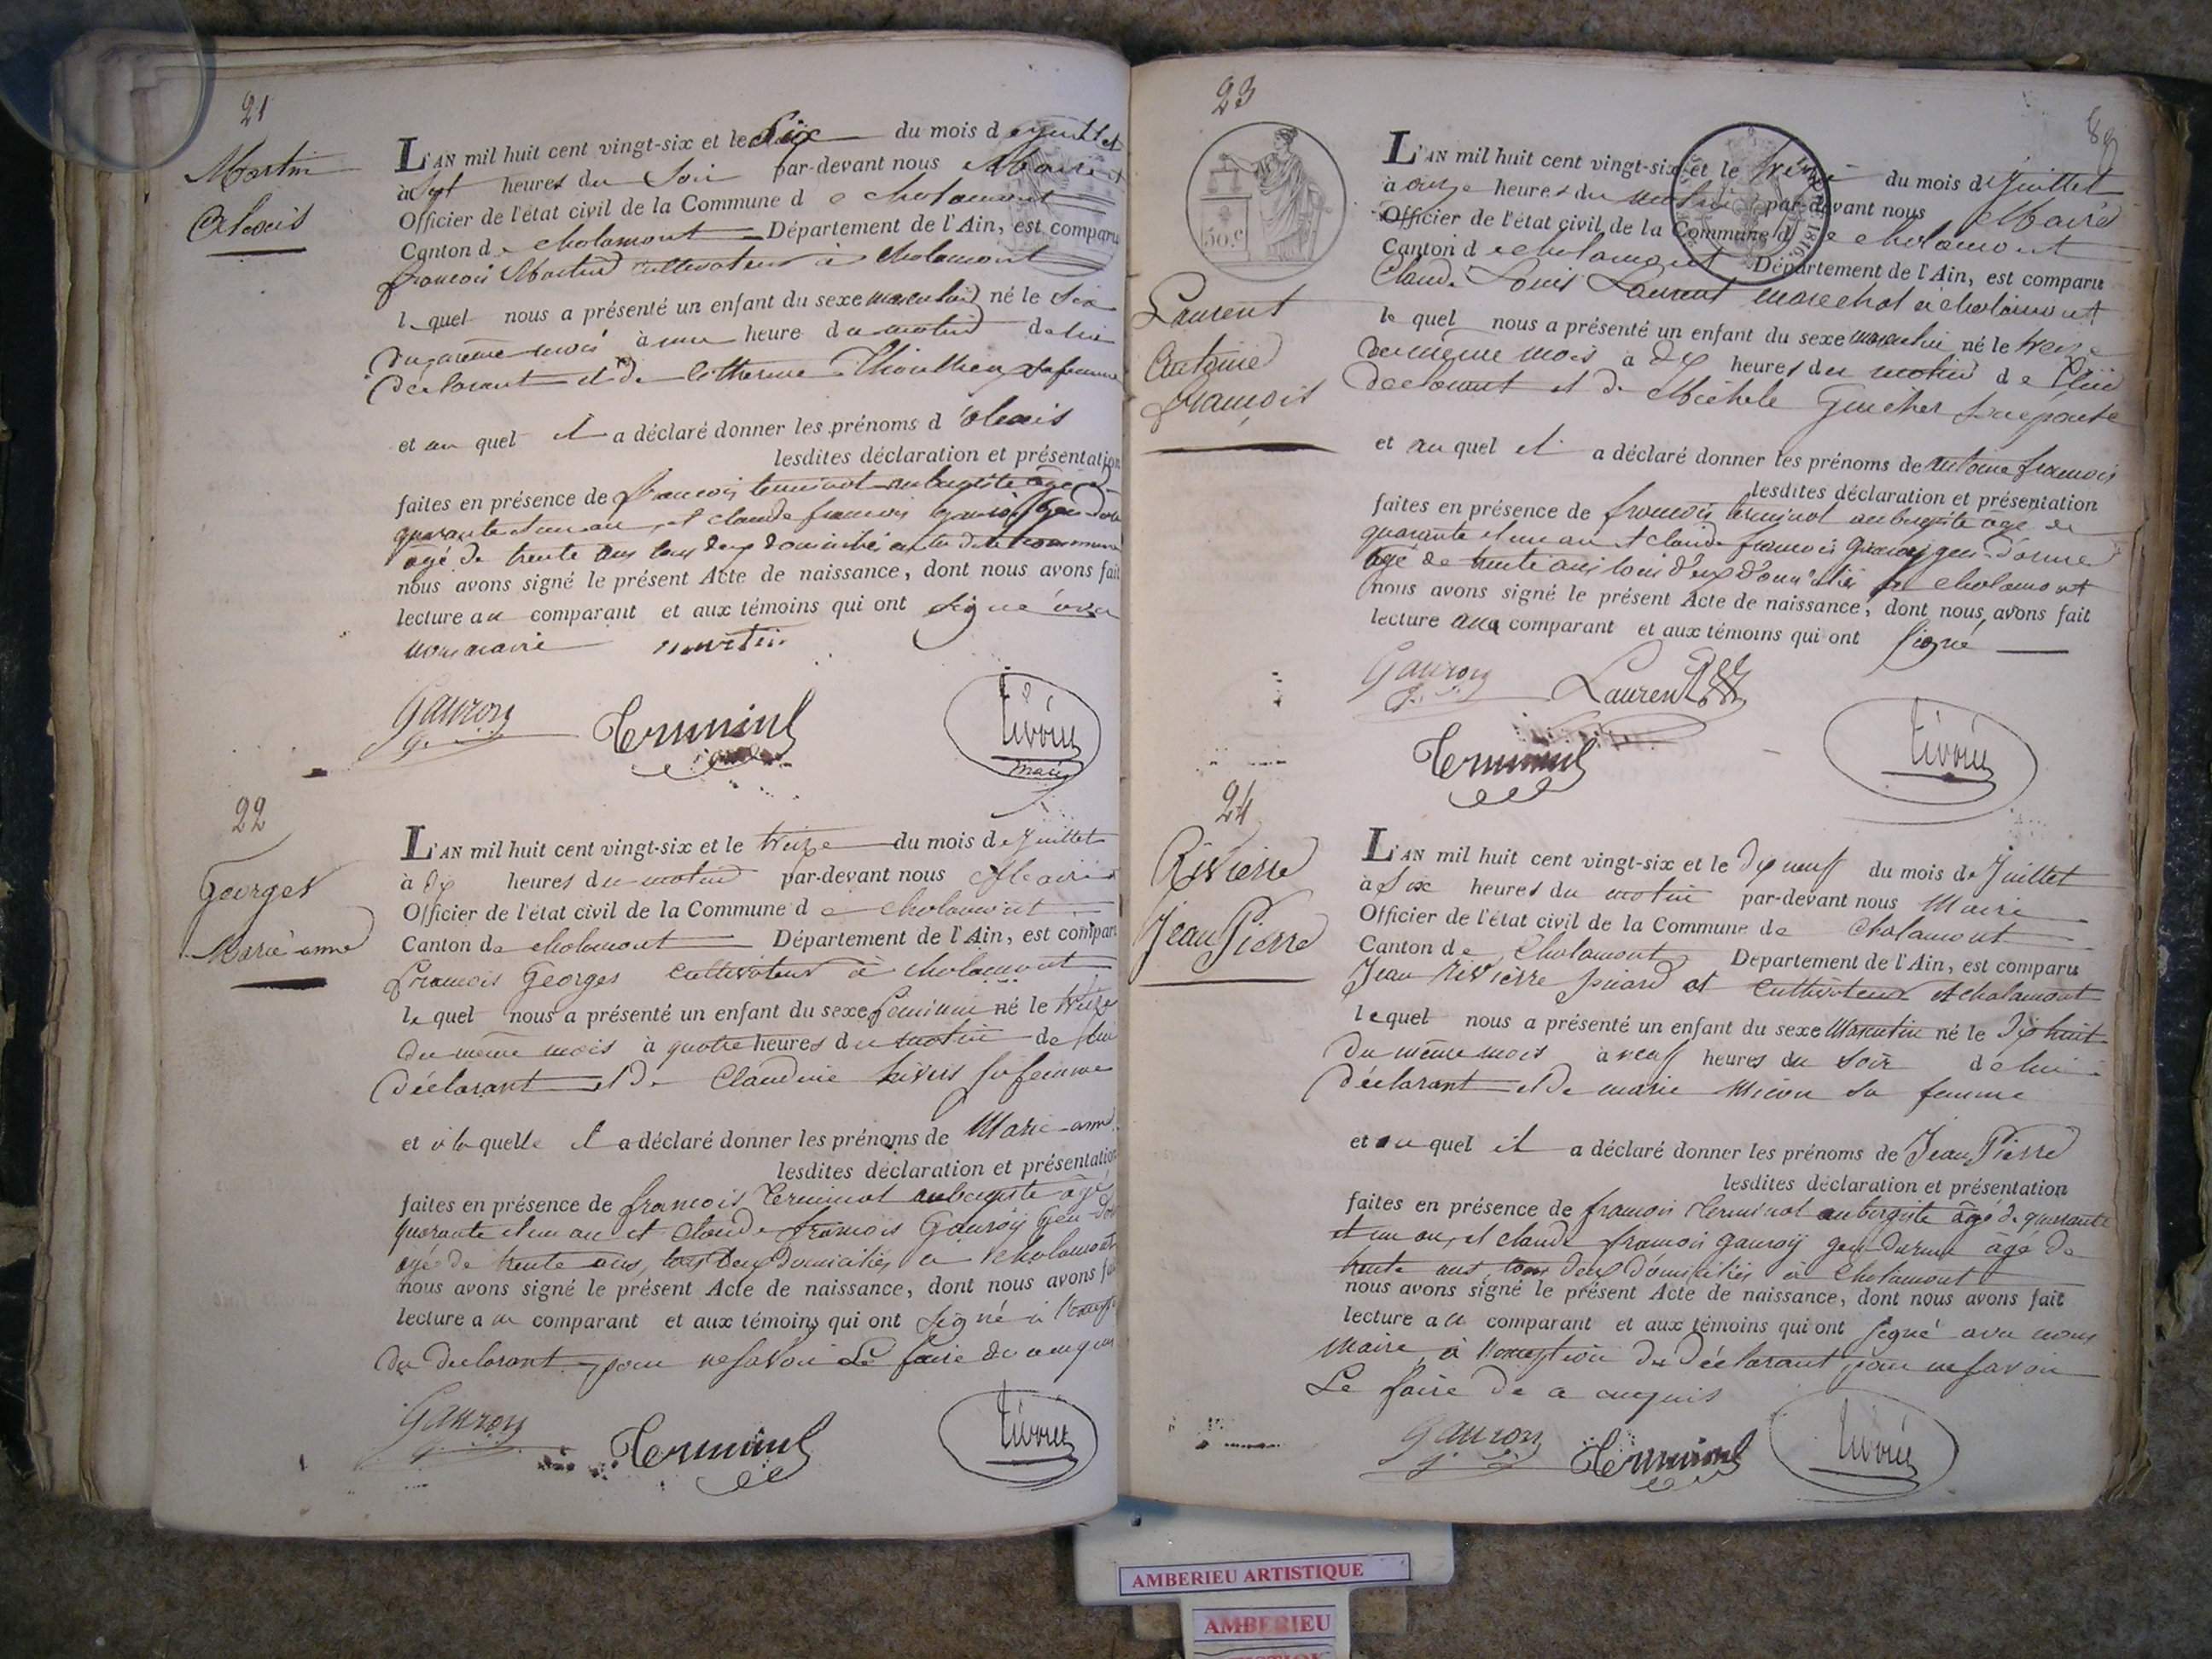 21
Martin
Alexis
L'AN mil huit cent vingt-six et le Six du mois de juillet
à Sept heures du Soir par-devant nous Maire et
Officier de l'état civil de la Commune de Chalamont
Canton de Chalamont Département de l'Ain, est comparu
françois Martin cultivateur à Chalamont
lequel nous a présenté un enfant du sexe masculin né le Six
du même mois à une heure du matin de lui
déclarant et de Catherine sa femme
et au quel il a déclaré donner les prénoms d'alexis
lesdites déclaration et présentation
faites en présence de françois terminal aubergiste âgé de
quarante et un an, et claude françois
agé de trente ans tous deux domiciliés
nous avons signé le présent Acte de naissance, dont nous avons fait
lecture au comparant et aux témoins qui ont signé avec
nous maire martin
Gauroy
Terminal
maire
22
Georges
Marie anne
L'AN mil huit cent vingt-six et le treize du mois de Juillet
à dix heures du matin par-devant nous Maire
Officier de l'état civil de la Commune de Chalamont
Canton de chalamont Département de l'Ain, est comparu
françois Georges Cultivateur à chalamont
lequel nous a présenté un enfant du sexe feminin né le treize
du même mois à quatre heures du matin de lui
déclarant et de Claudine sa femme
et à laquelle il a déclaré donner les prénoms de Marie anne
lesdites déclaration et présentation
faites en présence de françois Terminal aubergiste âgé
quarante et un an et Claude françois Gauroy
agé de trente ans, tous deux domiciliés à chalamont
nous avons signé le présent Acte de naissance, dont nous avons fait
lecture au comparant et aux témoins qui ont signé à
du declarant pour ne savoir Le faire
Gauroy
Terminal
23
89
50.c
1816
Laurent
Antoine
françois
L'AN mil huit cent vingt-six et le treize du mois de Juillet
à onze heures du matin par-devant nous Maire
Officier de l'état civil de la Commune de chalamont
Canton de chalamont Département de l'Ain, est comparu
Claude Louis Laurent marechal à chalamont
lequel nous a présenté un enfant du sexe masculin né le treize
du même mois à dix heures du matin de lui
declarant et de Michele Guicher son epouse
et au quel il a déclaré donner les prénoms de antoine francois
lesdites déclaration et présentation
faites en présence de francois terminal aubergiste agé de
quarante et un an et claude francois Gauroy gen d'arme
agé de trente ans tous deux domiciliés à chalamont
nous avons signé le présent Acte de naissance, dont nous avons fait
lecture aux comparant et aux témoins qui ont signé
Gauroy
Laurent
Terminal
24
Rivierre
Jean Pierre
L'AN mil huit cent vingt-six et le dix neuf du mois de Juillet
à Six heures du matin par-devant nous Maire
Officier de l'état civil de la Commune de Chalamont
Canton de Chalamont Département de l'Ain, est comparu
Jean Rivierre cultivateur à chalamont
lequel nous a présenté un enfant du sexe Masculin né le dix huit
du même mois à neuf heures du soir de lui
déclarant et de marie sa femme
et au quel il a déclaré donner les prénoms de Jean Pierre
lesdites déclaration et présentation
faites en présence de francois Terminal aubergiste âgé de quarante
et un an, et claude francois gauroy gen darme âgé de
trente ans tous deux domiciliés à Chalamont
nous avons signé le présent Acte de naissance, dont nous avons fait
lecture au comparant et aux témoins qui ont signé avec nous
Maire, à l'exception du déclarant, pour ne savoir
Le faire de ce enquis
Gauroy
Terminal
AMBERIEU ARTISTIQUE
AMBERIEU